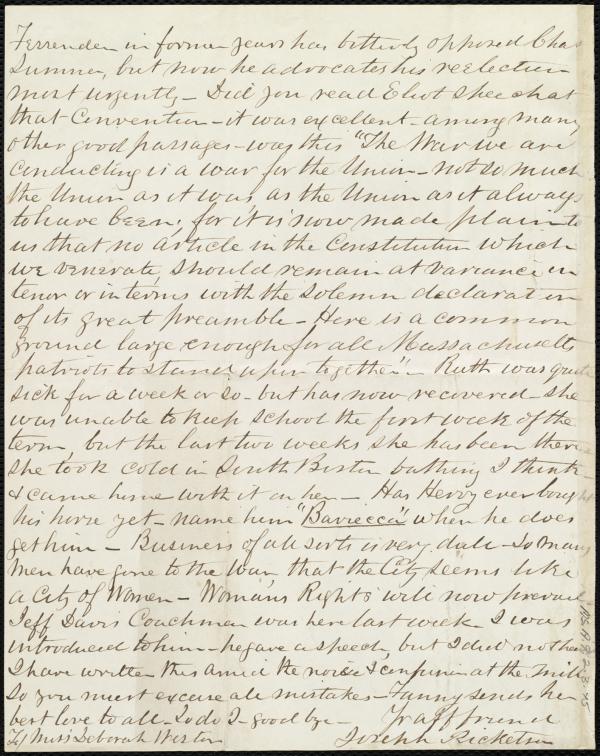 Ferrenden in former years has bitterly opposed Chas
Sumner, but now he advocates his reelection
most urgently – Did you read Eliot Speech at
that Convention – it was excellent – among many
other good passages – was this "The War we are
conducting is a war for the Union – not so much
the Union as it was, as the Union as it always
to have been; for it is now made plain to
us that no article in the Constitution which
we venerate, should remain at variance in
tenor or in terms with the solemn declaration
of its great preamble – Here is a common
ground large enough for all Massachusetts
patriots to stand upon together" – Ruth was quite
sick for a week or so – but has now recovered – she
was unable to keep school the first week of the
term, but the last two weeks she has been there
she took cold in South Boston bathing I think –
& came home with it on her – Has Hervy ever bought
his horse yet – name him "Baviecca" when he does
get him – Business of all sorts is very dull – So many
Men have gone to the war that the City seems like
a City of Women – Woman's Rights will now prevail
Jeff Davis Coachman was here last week I was
introduced to him – he gave a speech, but I did not hear
I have written this amid the noise & confusion at the Mill
So you must excuse all mistakes – Fanny sends her
best love to all – So do I – good bye –
Yr aff friend
To Miss Deborah Weston
Joseph Ricketson